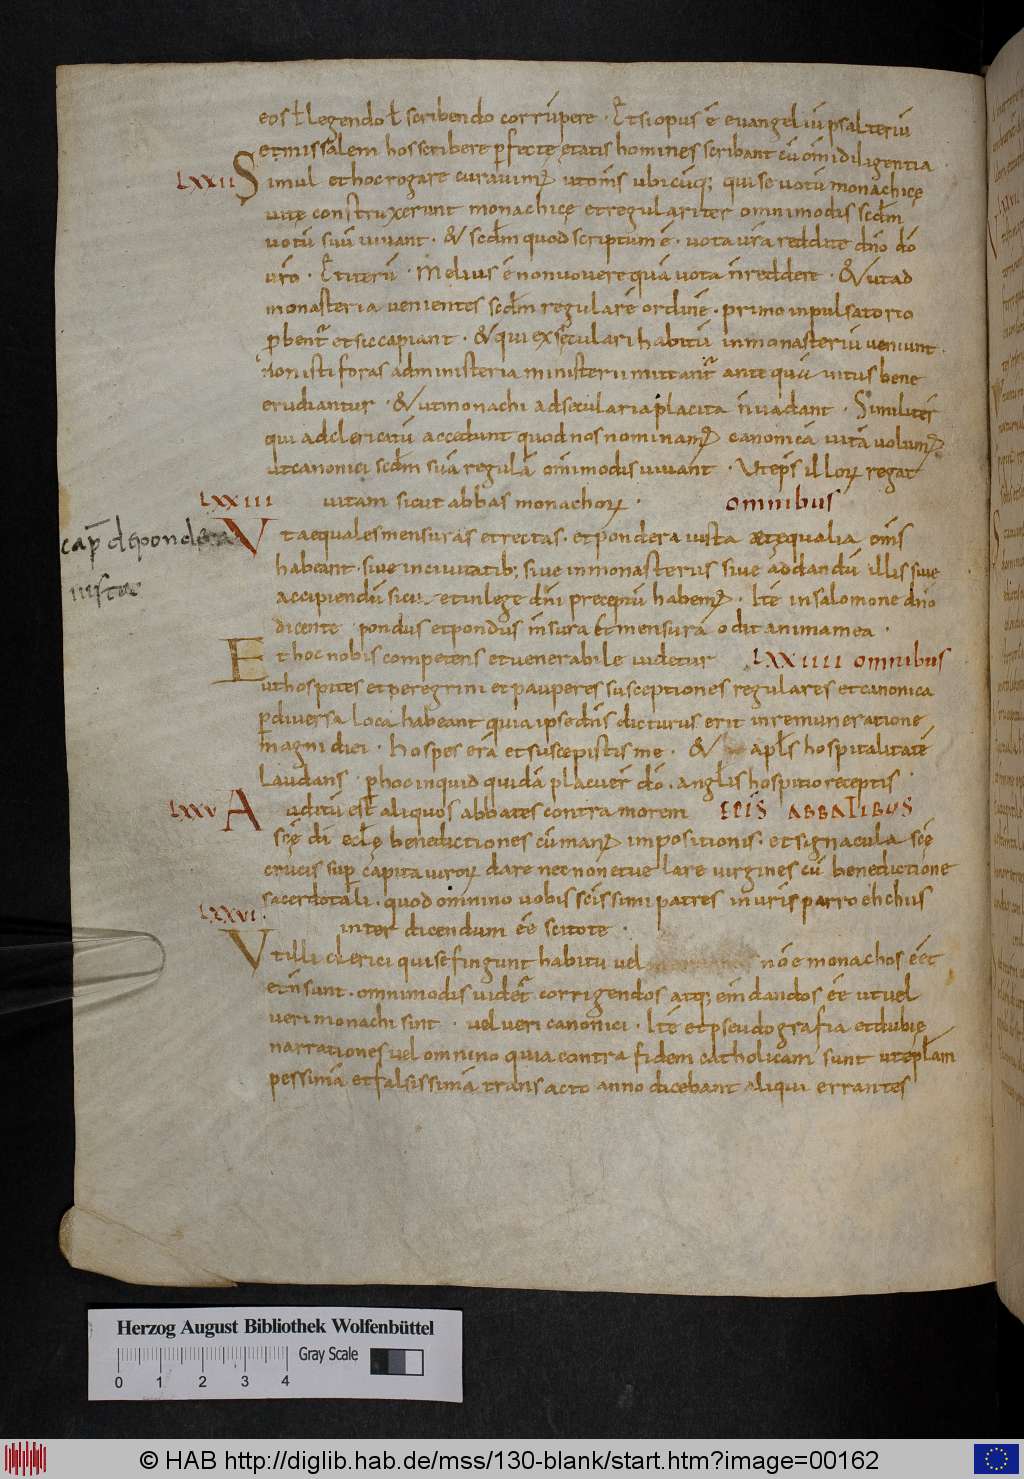 eos ł legendo ł scribendo corrūpere · Et si opus ē euangeliū psalteriū
et missalem hos scribere pfectę etatis homines scribant cū om̄i diligentia ·
LXXII Simul et hoc rogare curauim; ut om̄s ubicūq; qui se uotū monachicę
uitę construxerunt monachicę et regulariter omnimodis scdm
uotū suū uiuant · & scdm quod scriptum ē · uota ur̄a reddite dn̄o dō
ur̄o · Et iterū · Melius ē non uouere quā uota n̄ reddere · & ut ad
monasteria uenientes scdm regularē ordinē · primo in pulsatorio
pbent̄ et sic accipiant · & qui ex sęculari habitū in monasteriū ueniunt ·
non isti foras ad ministeria monasterii mittant̄ ante quā intus bene
erudiantur · & ut monachi ad secularia placita n̄ uadant · Similiter
qui ad clericatū accedunt quod nos nominam; canonicā uitā uolum;
ut canonici scdm suā regulā om̄imodis uiuant · Ut ep̄s illoꝝ regat
LXXIII uitam sicut abbas monachoꝝ · omnibus
cap̄ de pondera
iusta
Ut aequales mensuras et rectas · et pondera iusta et equalia om̄s
habeant · siue in ciuitatib; siue in monasteriis siue ad dandū illis siue
accipiendū sicut et in lege dn̄i preceptū habem; · Itē in salomone dn̄o
dicente · pondus et pondus m̄sura et mensurā odit anima mea ·
Et hoc nobis competens et uenerabile uidetur LXXIIII omnibus
ut hospites et peregrini et pauperes susceptiones regulares et canonica
p diuersa loca habeant quia ipse dn̄s dicturus erit in remuneratione
magni diei · hospes erā et suscepistis me · & apl̄s hospitalitatē
Laudans · p hoc inquid quidā placuer̄ dō · anglis hospitio receptis ·
LXXV Auditū est aliquos abbates contra morem EPIS ABBATIBUS
scę dī ecl̄ę benedictiones cū man; impositionis · et signacula scę
crucis sup capita uiroꝝ dare nec non et uelare uirgines cū benedictione
sacerdotali · quod omnino uobis scissimi patres in uris parrochichus
LXXVI inter dicendum eē scitote ·
Ut illi clerici qui se fingunt habitu uel nōe monachos eēt
et n̄ sunt · omnimodis uidet̄ corrigendos atq; em̄dandos eē ut uel
ueri monachi sint · uel ueri canonici · Itē et pseudografia et dubię
narrationes uel omnino quia contra fidem catholicam sunt ut epłam
pessimā et falsissimā transacto anno dicebant aliqui errantes
Herzog August Bibliothek Wolfenbüttel
Gray Scale
0 1 2 3 4
© HAB http://diglib.hab.de/mss/130-blank/start.htm?image=00162